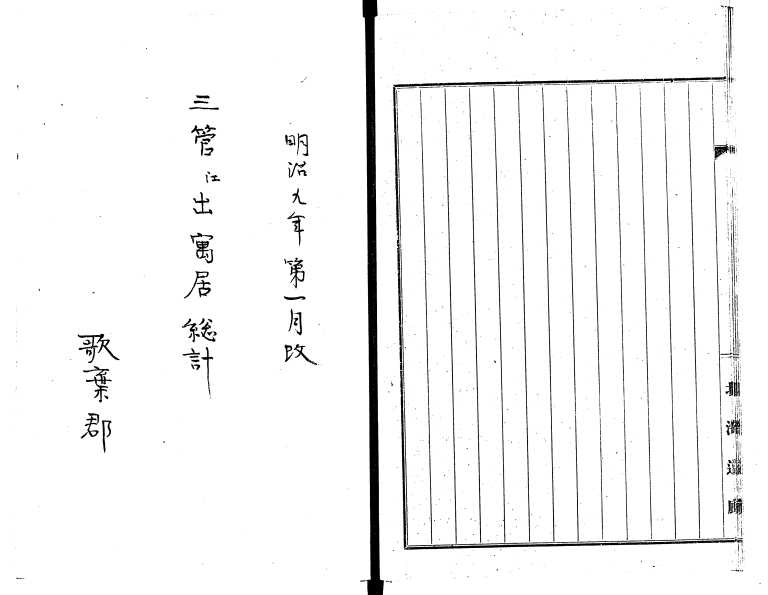 北海道庁
明治九年第一月改
三管江出寓居総計
歌棄郡